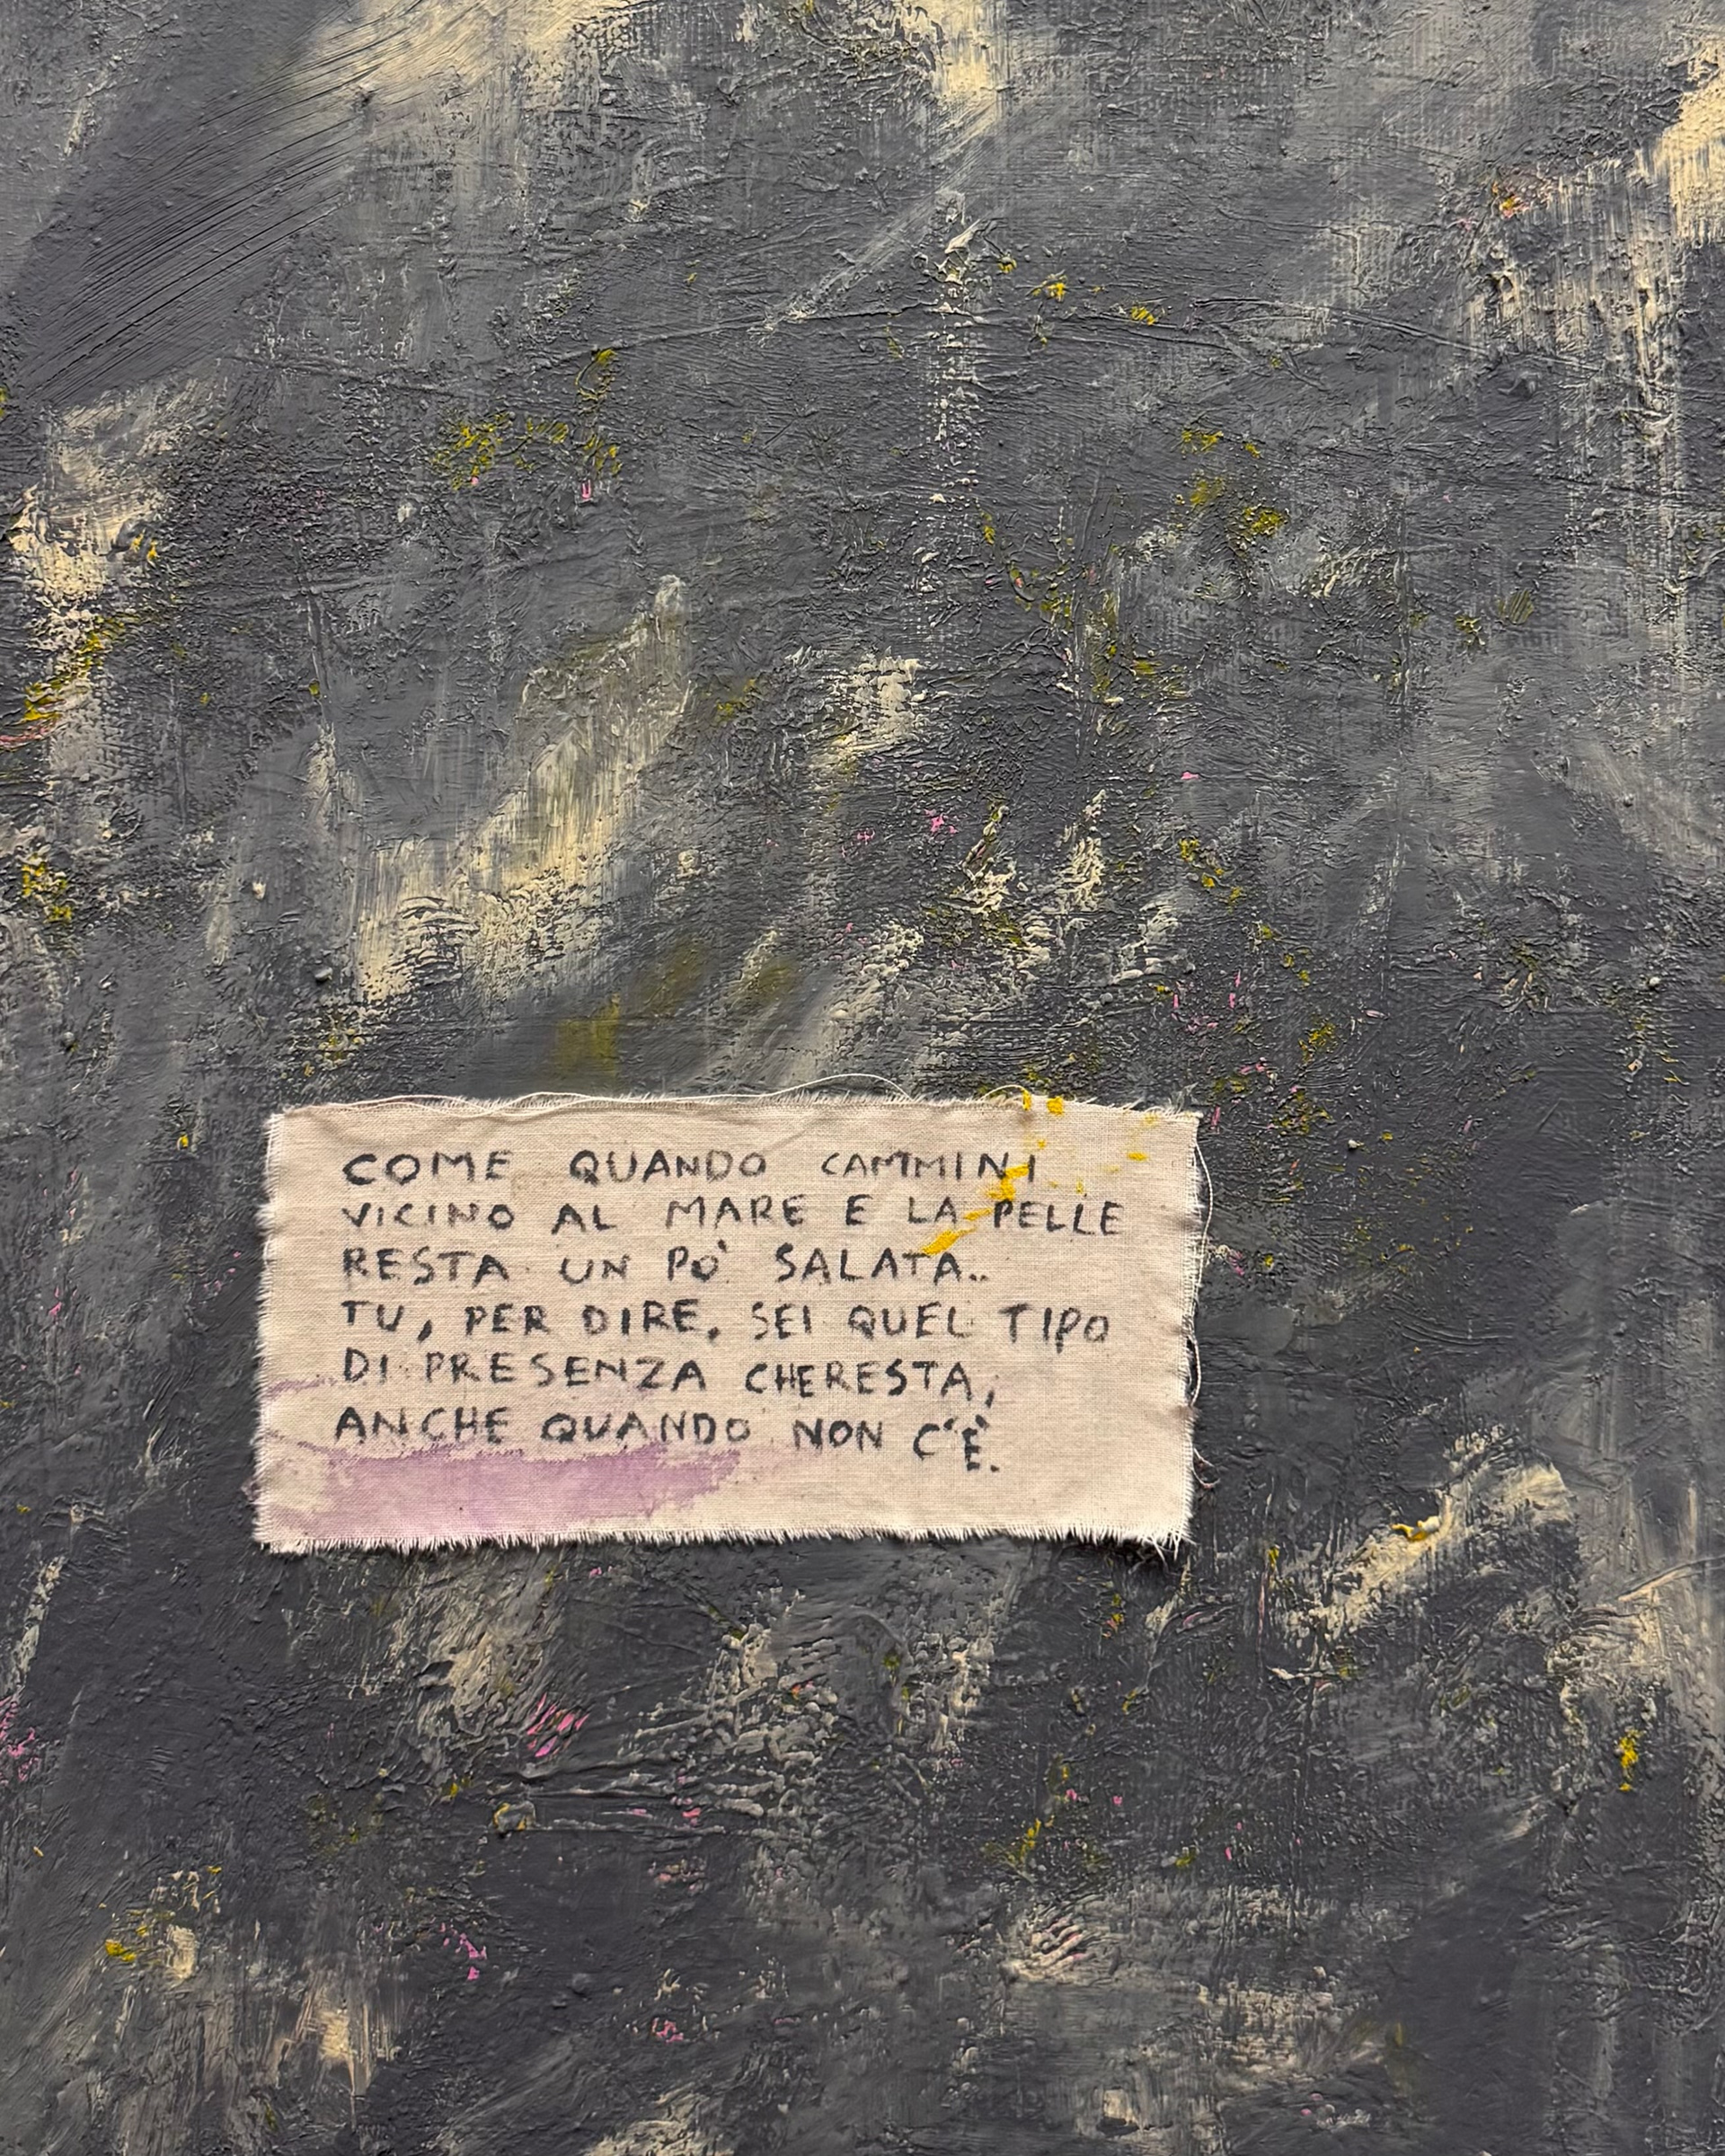 COME QUANDO CAMMINI
VICINO AL MARE E LA PELLE
RESTA UN PO' SALATA..
TU, PER DIRE, SEI QUEL TIPO
DI PRESENZA CHERESTA,
ANCHE QUANDO NON C'È.